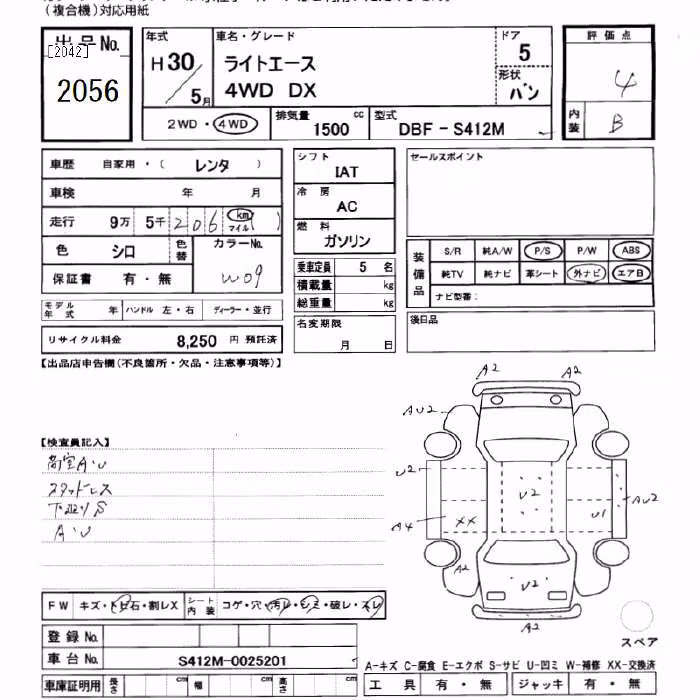 (複合機)対応用紙
出品No. [2042] 2056
年式 H30/5月
車名・グレード ライトエース 4WD DX
ドア 5
形状 バン
評価点 4
内装 B
2WD・4WD
排気量 1500 cc
型式 DBF-S412M
車歴 自家用・( レンタ )
車検 年 月
走行 9万 5千 206 km マイル ( )
色 シロ 色替
カラーNo. W09
保証書 有・無
モデル年式 年 ハンドル 左・右 ディーラー・並行
リサイクル料金 8,250 円 預託済
シフト IAT
冷房 AC
燃料 ガソリン
乗車定員 5 名
積載量 kg
総重量 kg
名変期限 月 日
セールスポイント
装備品 S/R 純A/W P/S P/W ABS
純TV 純ナビ 革シート 外ナビ エアB
ナビ型番:
後日品
【出品店申告欄(不良箇所・欠品・注意事項等)】
【検査員記入】
荷室A・U
スタッドレス
下廻りS
A・U
A2 A2
AU2
U2 U2 AU2
A4 XX U1
A2 U2
A2
スペア
FW キズ・トビ石・割レX
シート内装 コゲ・穴・汚レ・シミ・破レ・スレ
登録No.
車台No. S412M-0025201
車庫証明用 長さ cm 幅 cm 高さ cm
A-キズ C-腐食 E-エクボ S-サビ U-凹ミ W-補修 XX-交換済
工具 有・無 ジャッキ 有・無